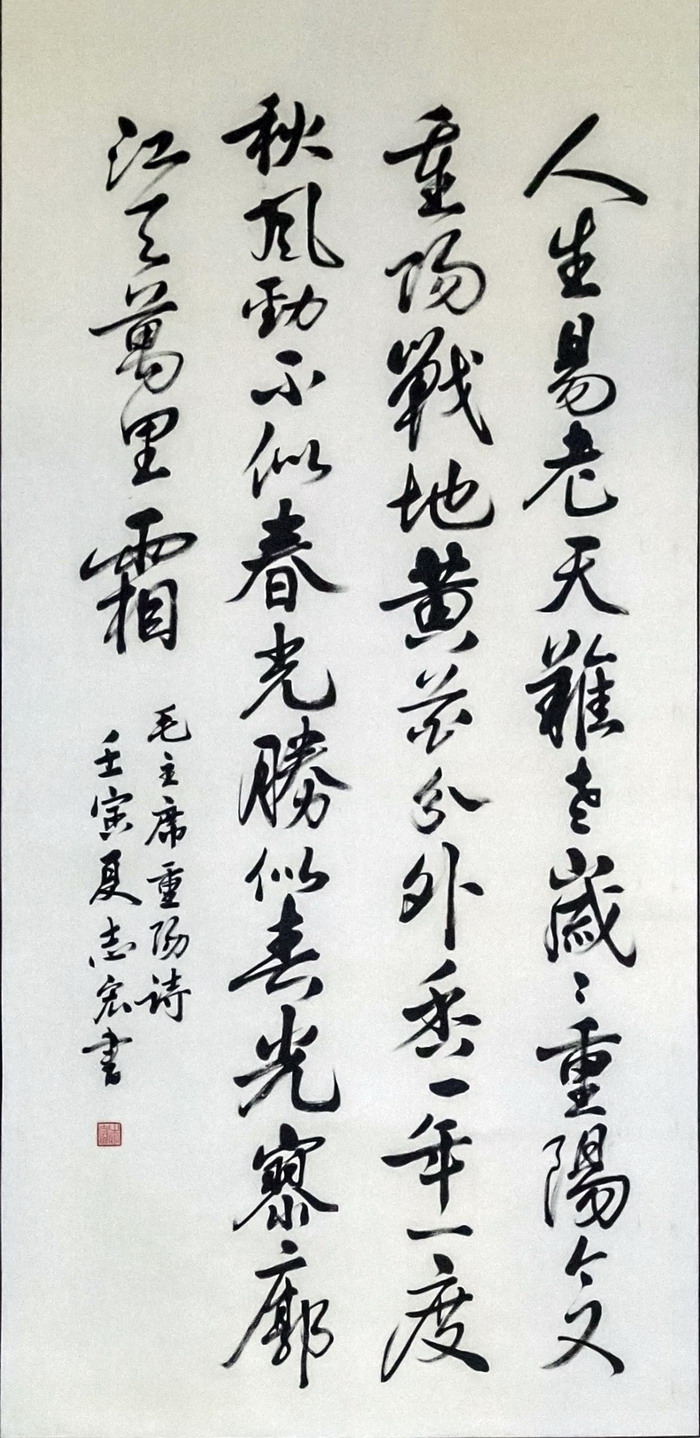 人生易老天難老歲〻重陽今又
重陽戰地黄花分外香一年一度
秋風勁不似春光勝似春光寥廓
江天萬里霜
毛主席重陽诗
壬寅夏志宏書